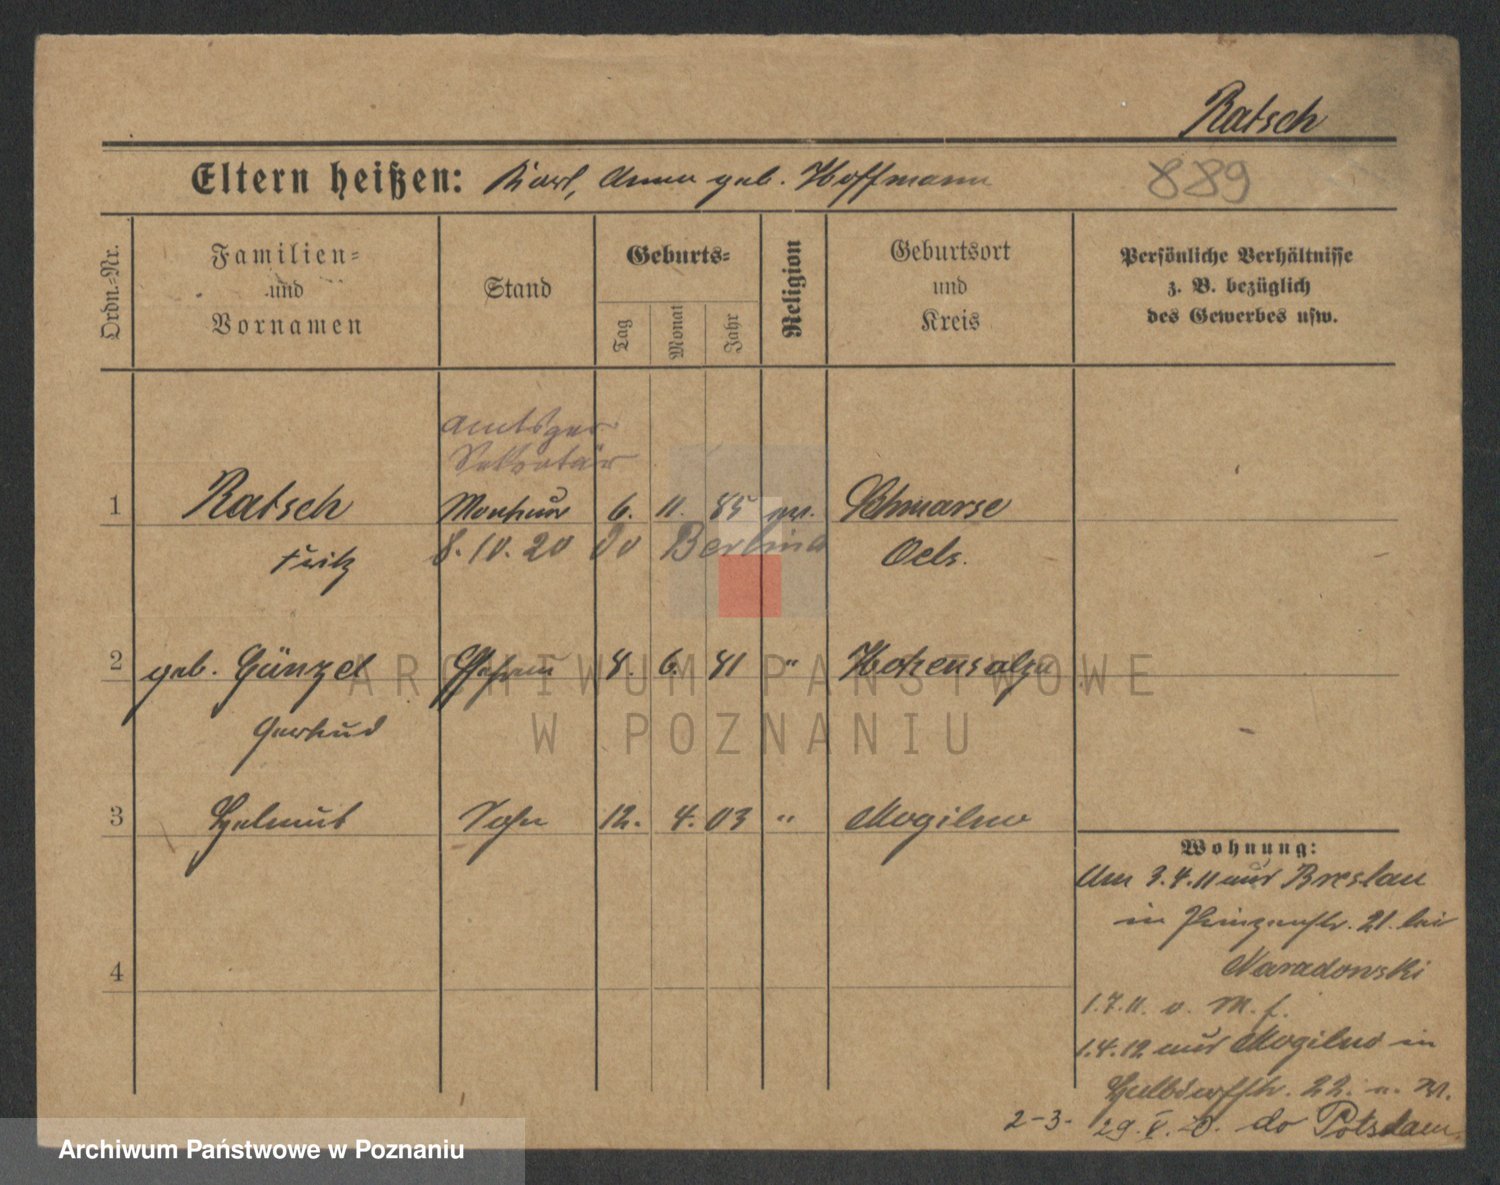 Ratsch
Eltern heißen: Karl, Anna geb. Hoffmann
889
Ordn.-Nr.
Familien-
und
Vornamen
Stand
Geburts-
Tag
Monat
Jahr
Religion
Geburtsort
und
Kreis
Persönliche Verhältnisse
z. B. bezüglich
des Gewerbes usw.
Amtsger
Sekretär
1 Ratsch Monteur 6. 11. 85 ev. Schmarse
Fritz 8.10.20 do Berlina Oels.
2 geb. Günzel Ehefrau 8. 6. 81 " Hohensalza
Gertrud
3 Helmut Sohn 12. 4. 03 " Mogilno
Wohnung:
Am 3.4.11 aus Breslau
in Prinzenstr. 21. bei
Naradowski
1.7.11. v. M. f.
1.4.12 aus Mogilno in
Halbdorfstr. 22. a. W.
2-3. 29. V. 20. do Potsdam
ARCHIWUM PAŃSTWOWE
W POZNANIU
4
Archiwum Państwowe w Poznaniu